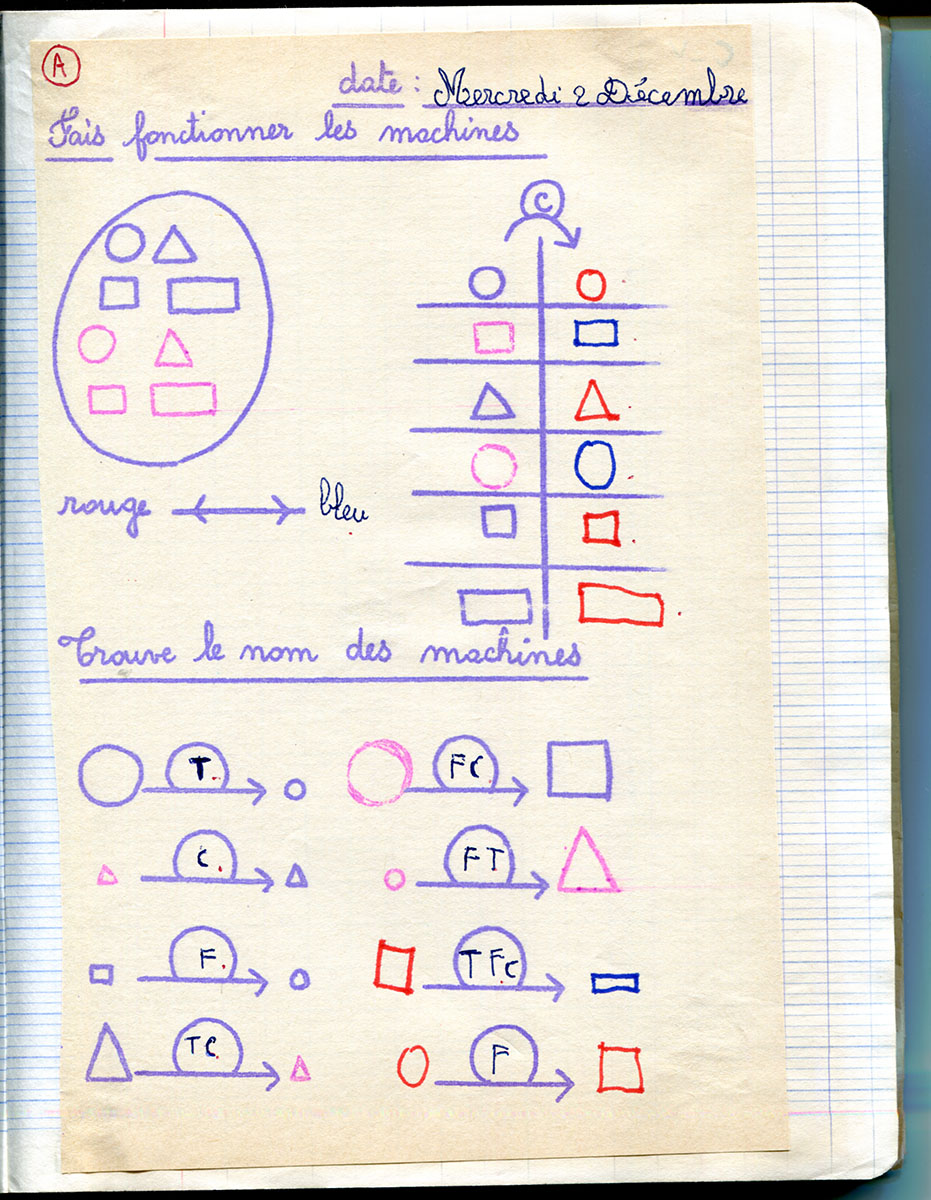 A
date : Mercredi 2 Décembre
Fais fonctionner les machines
C
rouge bleu
Trouve le nom des machines
T. FC
C. FT
F. TFC
TC F